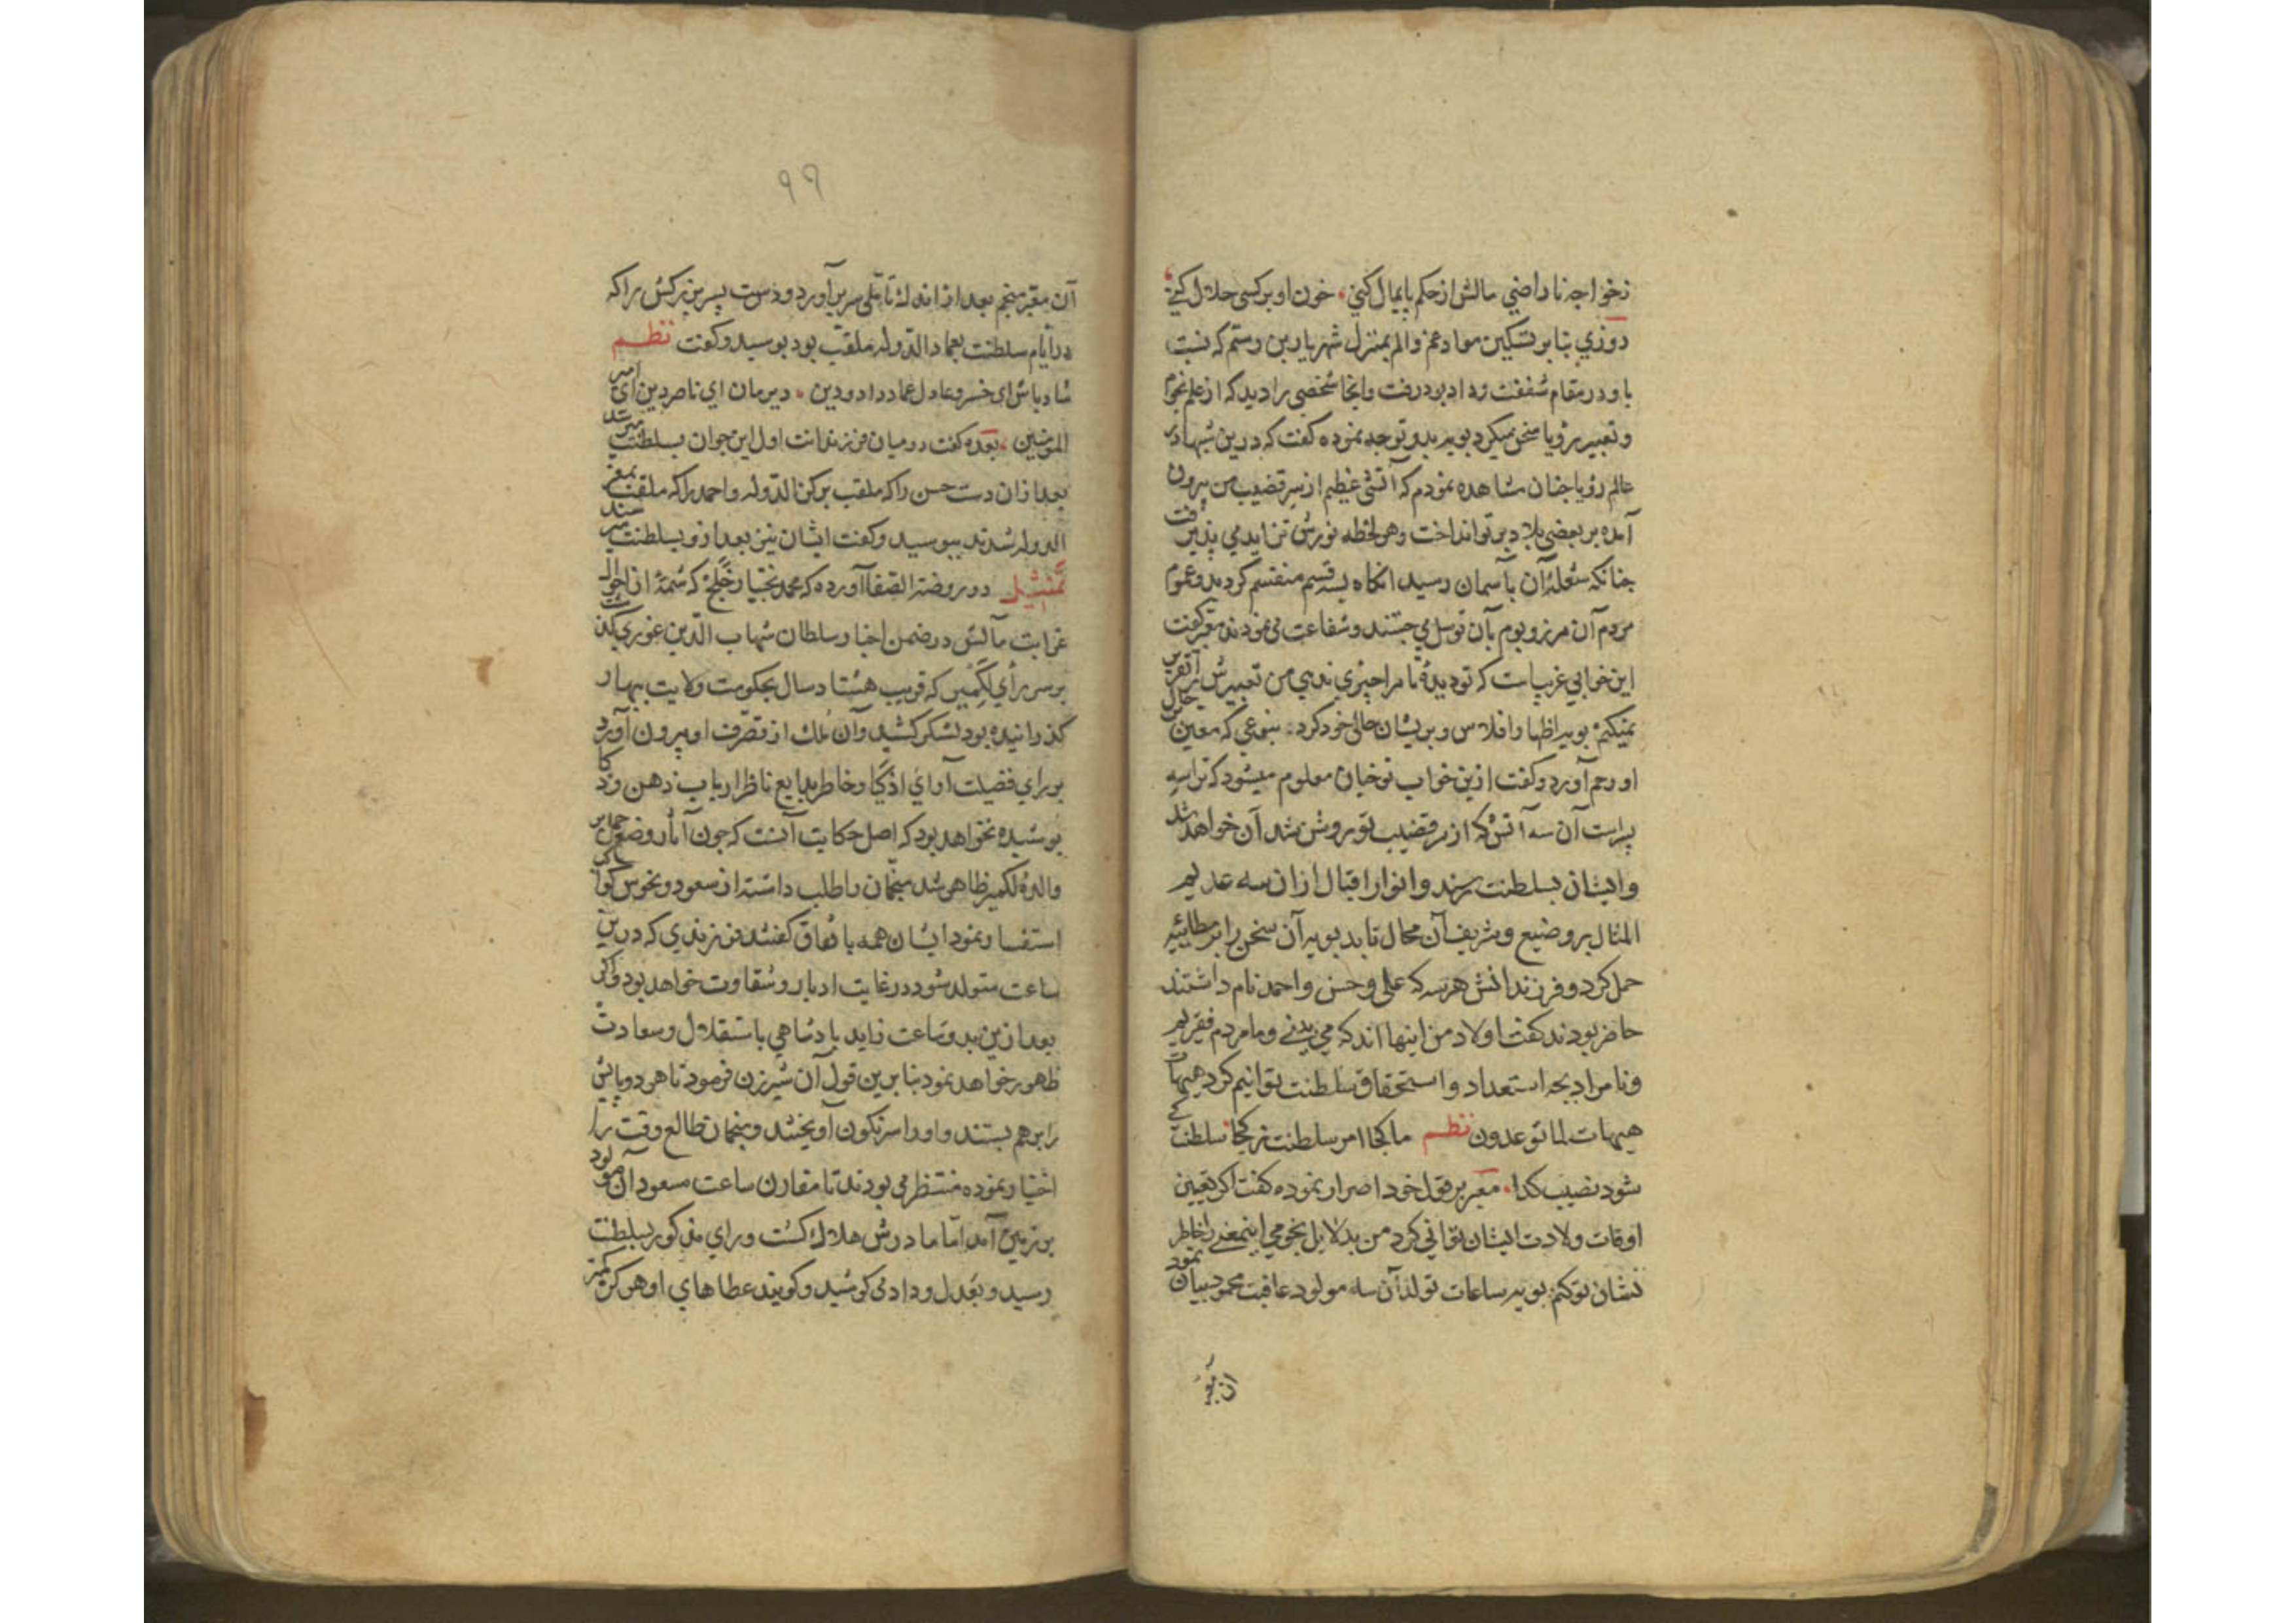 زخواجه ناراضي مالش از حكم پايمال كني خون او بر كسى حلال كني
روزي بنابر تسكين مواد غم والم بمنزل شهريار بن رستم كه نسبت
باو در مقام شفقت زداد بود رفت وانجا شخصى را ديد كه از علم نجوم
وتعبير رؤيا سخن ميكرد بويه بدو توجه نموده كفت كه درين شبها در
عالم رؤيا چنان مشاهده نمودم كه آتشى عظيم از سر قضيب من بيرون
آمده بر بعضى بلاد پرتو انداخت وهر لحظه نورش تزايد مي پذيرفت
چنانكه شعله آن بآسمان رسيد انكاه بسه قسم منقسم كرديد وعموم
مردم آن مرز وبوم بآن توسل مي جستند وشفاعت مى نمودند معبر كفت
اين خوابي غريب است كه تو ديدۀ تا مرا چيزي ندهي من تعبيرش را تقرير
نميكنم بويه اظهار افلاس وپريشان حالى خود كرد بنوعي كه معبر بن حال
او رحم آورد وكفت ازين خواب تو چنان معلوم ميشود كه ترا سه
پسر است آن سه آتش كه از سر قضيب تو روشن شد آن خواهد شد
وايشان بسلطنت رسند وانوار اقبال ازان سه عديم
المثال بر وضيع وشريف آن محال تابد بويه آن سخن را بر مطايبه
حمل كرد وفرزندانش هر سه كه على وحسن واحمد نام داشتند
حاضر بودند كفت اولاد من اينها اند كه مي بيني وما مردم فقيريم
ونامراد بچه استعداد واستحقاق سلطنت توانيم كرد هيهات
هيهات لما توعدون نظم ما كجا امر سلطنت ز كجا سلطنت كى
شود نصيب كدا معبر بر قول خود اصرار نموده كفت اكر تعيين
اوقات ولادت ايشان توانى كرد من بدلايل نجومي اينمعنى را خاطر
نشان تو كنم بويه ساعات تولد آن سه مولود عاقبت محمود بيان نمود
آن معبر
٩٩
آن معبر منجم بعد از اندك تأملى سر بر آورد ودست پسر بزركش را كه
در ايام سلطنت بعماد الدوله ملقب بود بوسيد وكفت نظم
شاد باش اى خسرو عادل عماد داد ودين دير مان اي ناصر دين اى امير
المومنين بعده كفت در ميان فرزندانت اول اين جوان بسلطنت ميرسد
بعد ازان دست حسن را كه ملقب بركن الدوله واحمد را كه ملقب بمعز
الدوله شدند ببوسيد وكفت ايشان نيز بعد ازو بسلطنت ميرسند
تمثيل در روضة الصفا آورده كه محمد بختيار خلج كه شمۀ از احوال
غرابت مآلش در ضمن اخبار سلطان شهاب الدين غوري كذشت
بر سر رأي لكمين كه قريب هشتاد سال بحكومت ولايت بهار
كذرانيده بود لشكر كشيد وآن ملك از تصرف او بيرون آورد
بر راي فضيلت آراي اذكيا وخاطر بدايع ناظر ارباب ذهن وذكا
پوشيده نخواهد بود كه اصل حكايت آنست كه چون آثار وضع حمل بر
والدۀ لكمين ظاهر شد منجمان را طلب داشته از سعود ونحوس كواكب
استفسار نمود ايشان همه باتفاق كفتند فرزندي كه درين
ساعت متولد شود در غايت ادبار وشقاوت خواهد بود واكر
بعد ازين بدو ساعت زايد پادشاهي باستقلال وسعادت
ظهور خواهد نمود بنابرين قول آن شير زن فرمود تا هر دو پايش
را بر هم بستند واورا سرنكون آويختند ومنجمان طالع وقت را
اختيار نموده منتظر مى بودند تا مقارن ساعت مسعود آن مولود
بر زمين آمد اما مادرش هلاك كشت وراي مذكور بسلطنت
رسيد وبعدل وداد مى كوشيد وكويند عطاهاي او هركز كمتر